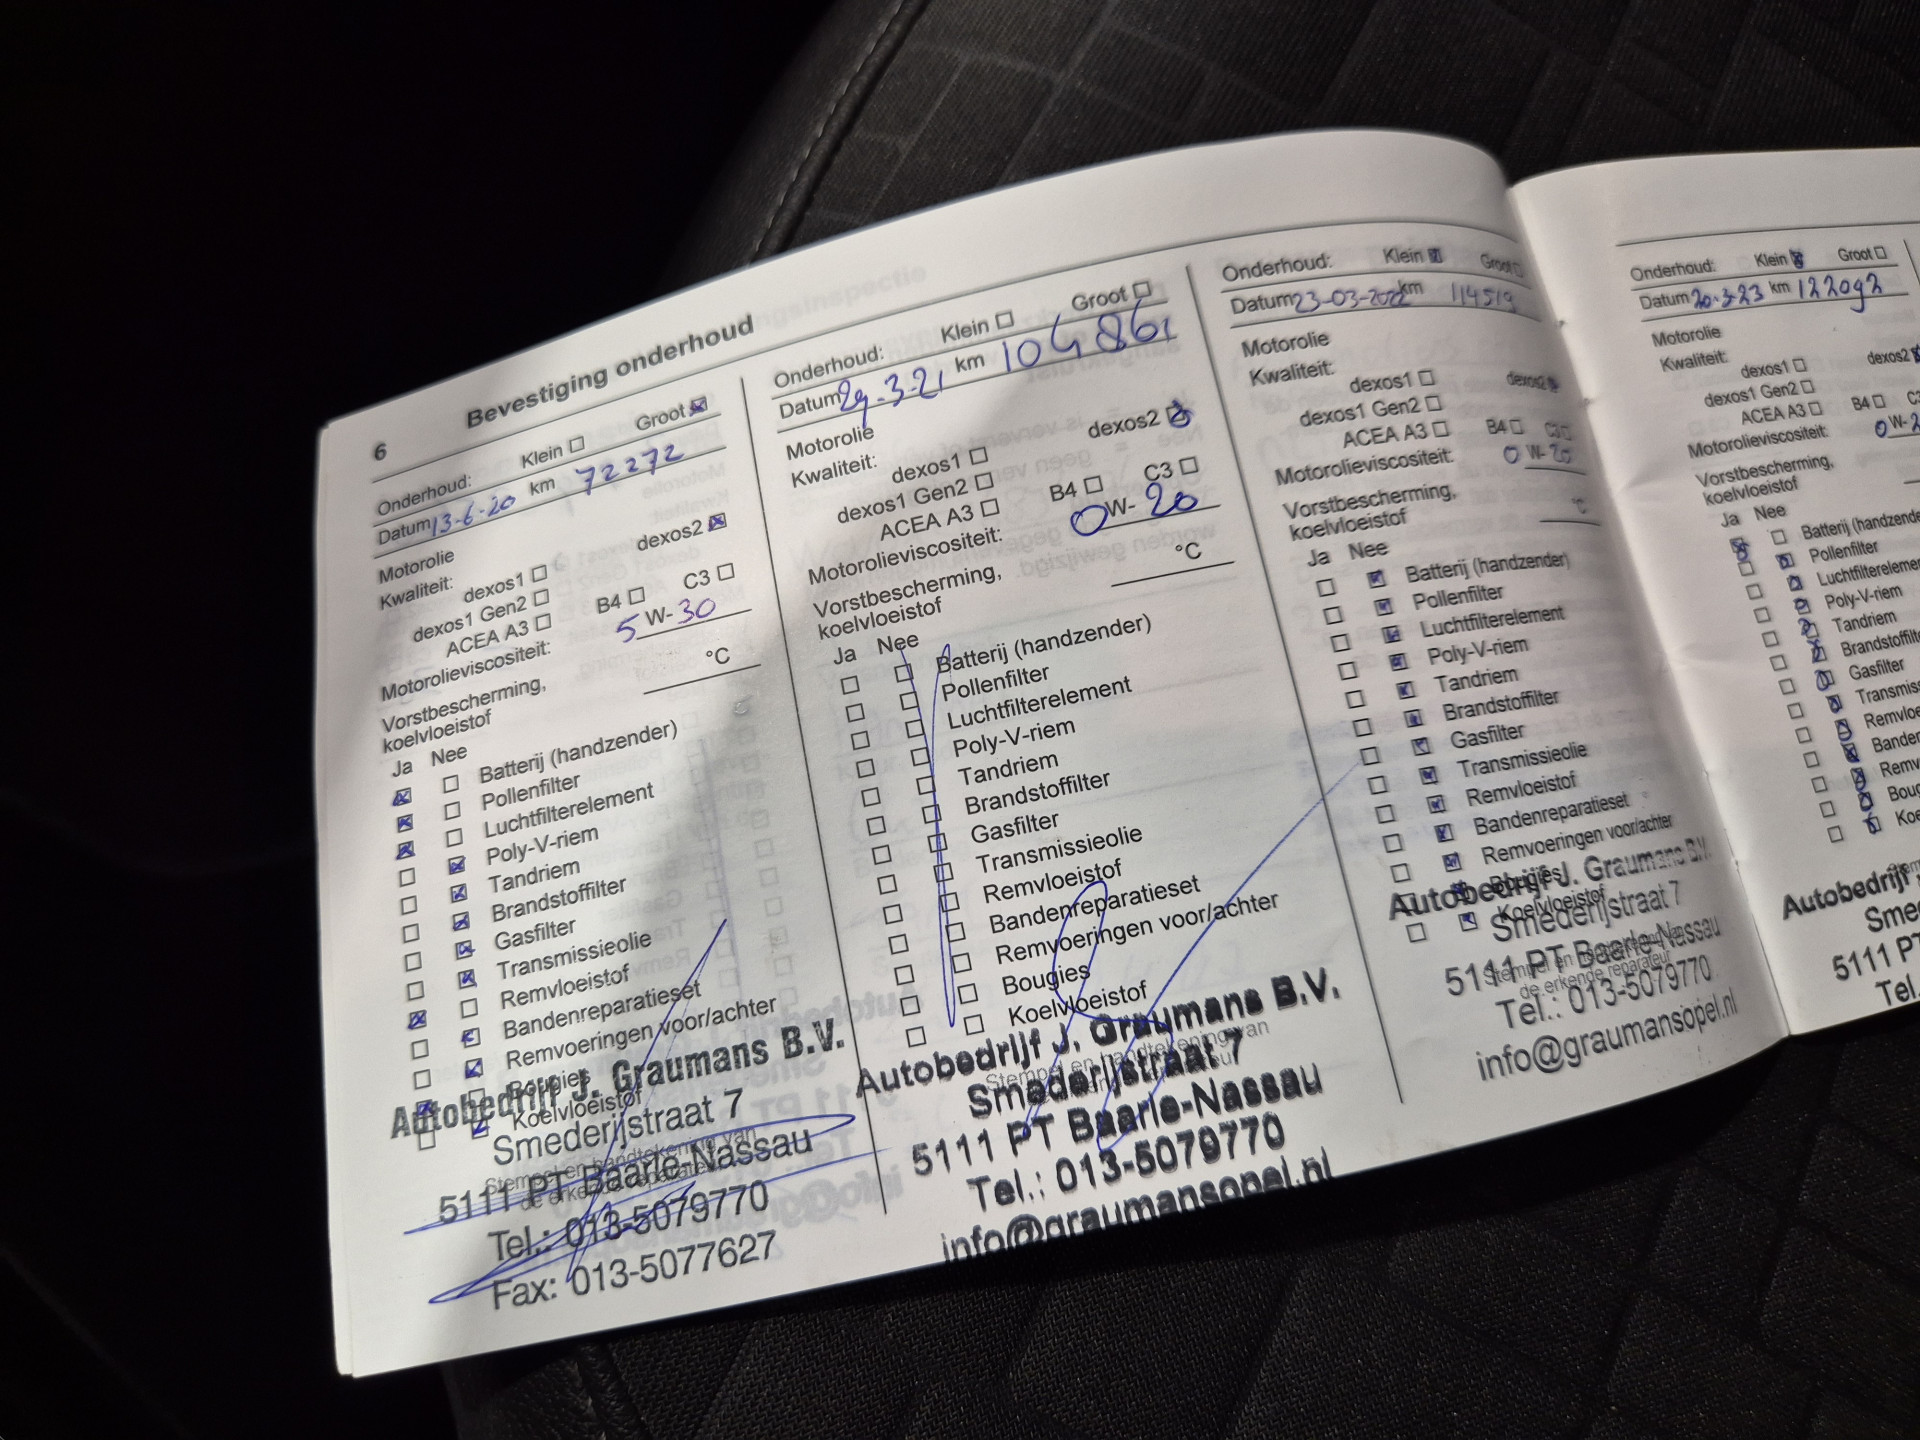 6 Bevestiging onderhoud
Onderhoud: Klein Groot
Datum 13-6-20 km 72272
Motorolie
Kwaliteit: dexos1 dexos2
dexos1 Gen2
ACEA A3 B4 C3
Motorolieviscositeit: 5 W- 30
Vorstbescherming,
koelvloeistof °C
Ja Nee
Batterij (handzender)
Pollenfilter
Luchtfilterelement
Poly-V-riem
Tandriem
Brandstoffilter
Gasfilter
Transmissieolie
Remvloeistof
Bandenreparatieset
Remvoeringen voor/achter
Bougies
Koelvloeistof
Stempel en handtekening van
de erkende reparateur
Autobedrijf J. Graumans B.V.
Smederijstraat 7
5111 PT Baarle-Nassau
Tel.: 013-5079770
Fax: 013-5077627
Onderhoud: Klein Groot
Datum 29-3-21 km 104861
Motorolie
Kwaliteit: dexos1 dexos2
dexos1 Gen2
ACEA A3 B4 C3
Motorolieviscositeit: 0 W- 20
Vorstbescherming,
koelvloeistof °C
Ja Nee
Batterij (handzender)
Pollenfilter
Luchtfilterelement
Poly-V-riem
Tandriem
Brandstoffilter
Gasfilter
Transmissieolie
Remvloeistof
Bandenreparatieset
Remvoeringen voor/achter
Bougies
Koelvloeistof
Stempel en handtekening van
Autobedrijf J. Graumans B.V.
Smederijstraat 7
5111 PT Baarle-Nassau
Tel.: 013-5079770
info@graumansopel.nl
Onderhoud: Klein Groot
Datum 23-03-2022 km 114519
Motorolie
Kwaliteit: dexos1 dexos2
dexos1 Gen2
ACEA A3 B4 C3
Motorolieviscositeit: 0 W- 20
Vorstbescherming,
koelvloeistof °C
Ja Nee
Batterij (handzender)
Pollenfilter
Luchtfilterelement
Poly-V-riem
Tandriem
Brandstoffilter
Gasfilter
Transmissieolie
Remvloeistof
Bandenreparatieset
Remvoeringen voor/achter
Bougies
Koelvloeistof
Stempel en handtekening van
de erkende reparateur
Autobedrijf J. Graumans B.V.
Smederijstraat 7
5111 PT Baarle-Nassau
Tel.: 013-5079770
info@graumansopel.nl
Onderhoud: Klein Groot
Datum 20-3-23 km 122092
Motorolie
Kwaliteit: dexos1 dexos2
dexos1 Gen2
ACEA A3 B4 C3
Motorolieviscositeit: 0 W- 2
Vorstbescherming,
koelvloeistof
Ja Nee
Batterij (handzende
Pollenfilter
Luchtfiltereleme
Poly-V-riem
Tandriem
Brandstoffilte
Gasfilter
Transmiss
Remvloe
Banden
Remv
Boug
Koe
Autobedrijf
Smed
5111 PT
Tel.